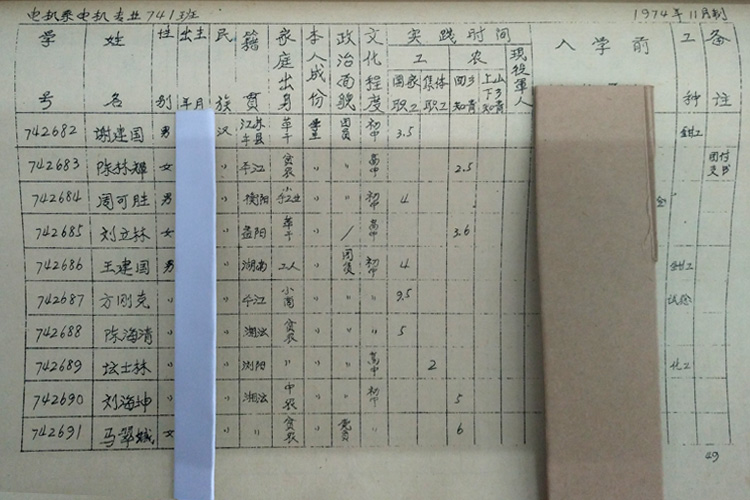 电机系电机专业741班 1974年11月制
学号 姓名 性别 出生年月 民族 籍贯 家庭出身 本人成份 政治面貌 文化程度 实践时间 入学前 工种 备注
工 农 现役军人
国家职工 集体职工 回乡知青 上山下乡知青
742682 谢建国 男 汉 江苏 革干 团员 初中 3.5 钳工
742683 陈林辉 女 〃 平江 贫农 〃 高中 2.5 团付支书
742684 周可胜 男 〃 衡阳 〃 初中 4
742685 刘立林 女 〃 益阳 革干 / 高中 3.6
742686 王建国 男 〃 湖南 工人 团员 初中 4 钳工
742687 方刚克 〃 〃 平江 小商 〃 〃 9.5 试验
742688 陈海清 〃 〃 湘潭 贫农 〃 〃 5
742689 士林 〃 〃 浏阳 〃 〃 高中 2 化工
742690 刘海坤 〃 〃 湘潭 中农 〃 初中 5
742691 马翠娥 女 〃 〃 贫农 党员 〃 6
49